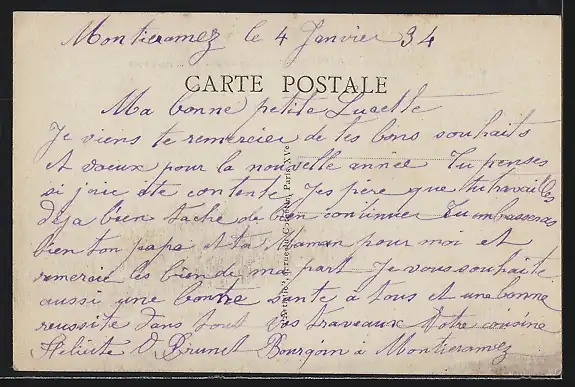 Montieramez le 4 Janvier 34
CARTE POSTALE
Ma bonne petite Lucette
Je viens te remercier de tes bons souhaits
et voeux pour la nouvelle année Tu penses
si joie ete contente Jes pere que tu travailles
deja bien tache de bien continuer Tu embrasseras
bien ton papa et ta Maman pour moi et
remercie les bien de ma part Je vous souhaite
aussi une bonne sente a tous et une bonne
reussite dans tout vos travaux Votre cousine
Brunet Bourgoin a Montieramez
Paris XVe